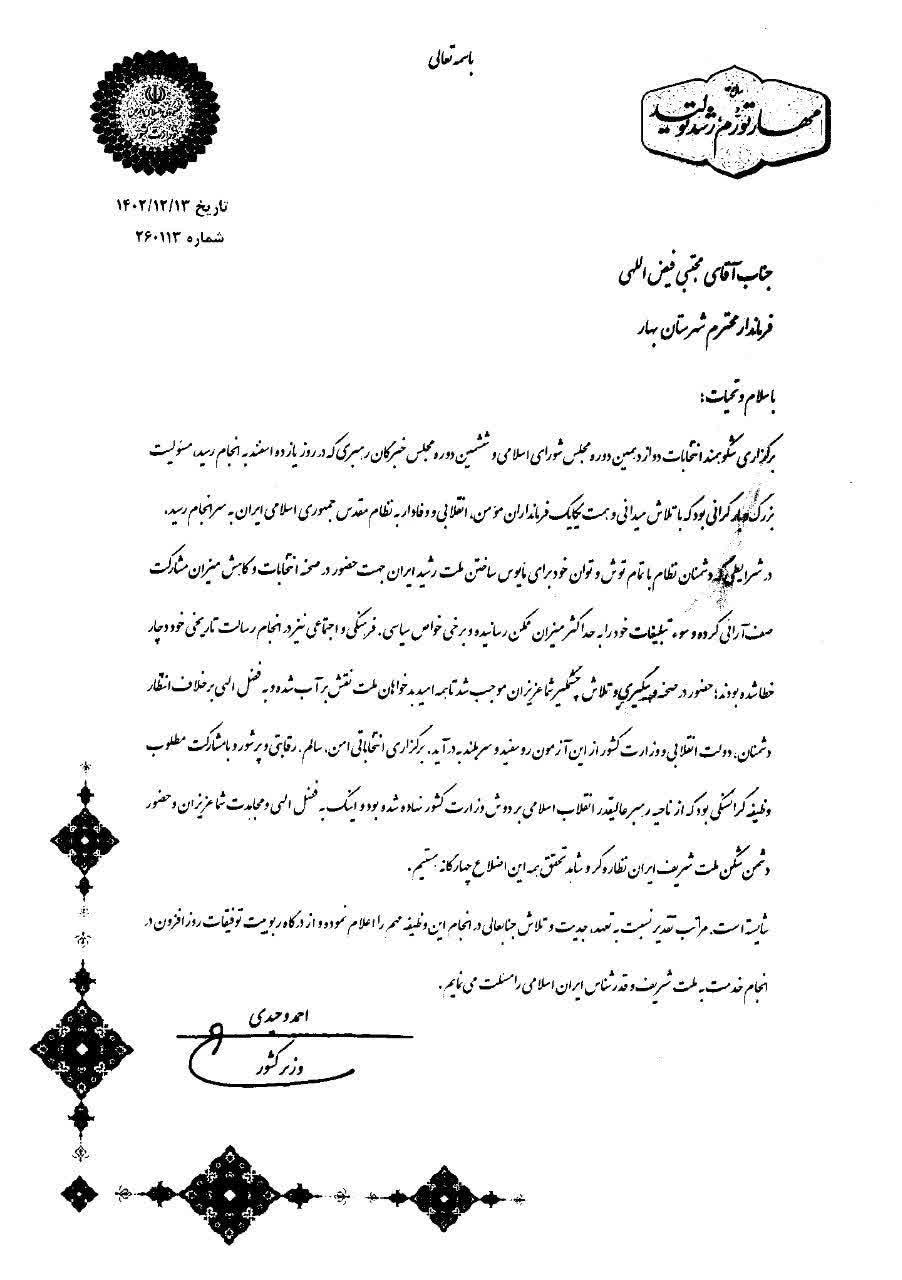 باسمه تعالی
مهار تورم، رشد تولید
تاریخ ۱۴۰۲/۱۲/۱۳
شماره ۲۶۰۱۱۳
جناب آقای مجتبی فیض اللهی
فرماندار محترم شهرستان بهار
با سلام و تحیات؛
برگزاری شکوهمند انتخابات دوازدهمین دوره مجلس شورای اسلامی و ششمین دوره مجلس خبرگان رهبری که در روز یازده اسفند به انجام رسید، مسئولیت
بزرگ و بار گرانی بود که با تلاش میدانی و همت یکایک فرمانداران مؤمن، انقلابی و وفادار به نظام مقدس جمهوری اسلامی ایران به سرانجام رسید.
در شرایطی که دشمنان نظام با تمام توش و توان خود برای مأیوس ساختن ملت رشید ایران جهت حضور در صحنه انتخابات و کاهش میزان مشارکت
صف‌آرائی کرده و سوء تبلیغات خود را به حداکثر میزان ممکن رسانیده و برخی خواص سیاسی، فرهنگی و اجتماعی نیز در انجام رسالت تاریخی خود دچار
خطا شده بودند؛ حضور در صحنه و پیگیری و تلاش چشمگیر شما عزیزان موجب شد تا همه امید بدخواهان ملت نقش بر آب شده و به فضل الهی بر خلاف انتظار
دشمنان، دولت انقلابی و وزارت کشور از این آزمون رو سفید و سربلند به در آید. برگزاری انتخاباتی امن، سالم، رقابتی و پرشور و با مشارکت مطلوب
وظیفه گرانسنگی بود که از ناحیه رهبر عالیقدر انقلاب اسلامی بر دوش وزارت کشور نهاده شده بود و اینک به فضل الهی و مجاهدت شما عزیزان و حضور
دشمن شکن ملت شریف ایران نظاره‌گر و شاهد تحقق همه این اضلاع چهارگانه هستیم.
شایسته است، مراتب تقدیر نسبت به تعهد، جدیت و تلاش جنابعالی در انجام این وظیفه مهم را اعلام نموده و از درگاه ربوبیت توفیقات روزافزون در
انجام خدمت به ملت شریف و قدرشناس ایران اسلامی را مسئلت می نمایم.
احمد وحیدی
وزیر کشور